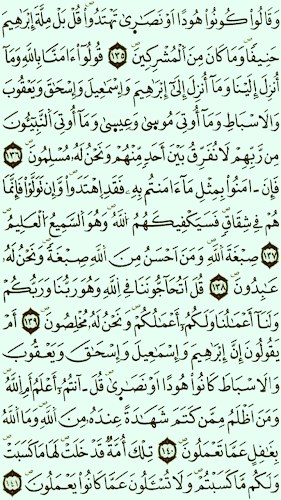 وَقَالُواْ كُونُواْ هُودًا اَوْ نَصَٰر۪يٰ تَهْتَدُواْۖ قُلْ بَلْ مِلَّةَ إِبْرَٰهِيمَ
حَنِيفاٗۖ وَمَا كَانَ مِنَ اَلْمُشْرِكِينَۖ ١٣٥ قُولُوٓاْ ءَامَنَّا بِاللَّهِ وَمَآ
أُنزِلَ إِلَيْنَا وَمَآ أُنزِلَ إِلَىٰٓ إِبْرَٰهِيمَ وَإِسْمَٰعِيلَ وَإِسْحَٰقَ وَيَعْقُوبَ
وَالَاسْبَاطِ وَمَآ أُوتِيَ مُوس۪يٰ وَعِيس۪يٰ وَمَآ أُوتِيَ اَلنَّبِيٓـُٔونَ
مِن رَّبِّهِمْ لَا نُفَرِّقُ بَيْنَ أَحَدٖ مِّنْهُمْ وَنَحْنُ لَهُۥ مُسْلِمُونَۖ ١٣٦
فَإِنَ ـ امَنُواْ بِمِثْلِ مَآ ءَامَنتُم بِهِۦ فَقَدِ اِهْتَدَواْۖ وَّإِن تَوَلَّوْاْ فَإِنَّمَا
هُمْ فِي شِقَاقٖۖ فَسَيَكْفِيكَهُمُ اُللَّهُۖ وَهُوَ اَلسَّمِيعُ اُلْعَلِيمُۖ
١٣٧ صِبْغَةَ اَللَّهِۖ وَمَنَ اَحْسَنُ مِنَ اَللَّهِ صِبْغَةٗۖ وَنَحْنُ لَهُۥ
عَٰبِدُونَۖ ١٣٨ قُلَ اَتُحَآجُّونَنَا فِي اِللَّهِ وَهُوَ رَبُّنَا وَرَبُّكُمْ
وَلَنَآ أَعْمَٰلُنَا وَلَكُمُۥٓ أَعْمَٰلُكُمْ وَنَحْنُ لَهُۥ مُخْلِصُونَۖ ١٣٩ أَمْ
يَقُولُونَ إِنَّ إِبْرَٰهِيمَ وَإِسْمَٰعِيلَ وَإِسْحَٰقَ وَيَعْقُوبَ
وَالَاسْبَاطَ كَانُواْ هُودًا اَوْ نَصَٰر۪يٰۖ قُلَ ـ آنتُمُۥٓ أَعْلَمُ أَمِ اِللَّهُۖ
وَمَنَ اَظْلَمُ مِمَّن كَتَمَ شَهَٰدَةً عِندَهُۥ مِنَ اَللَّهِۖ وَمَا اَللَّهُ
بِغَٰفِلٍ عَمَّا تَعْمَلُونَۖ ١٤٠ تِلْكَ أُمَّةٞ قَدْ خَلَتْۖ لَهَا مَا كَسَبَتْ
وَلَكُم مَّا كَسَبْتُمْۖ وَلَا تُسْـَٔلُونَ عَمَّا كَانُواْ يَعْمَلُونَۖ ١٤١